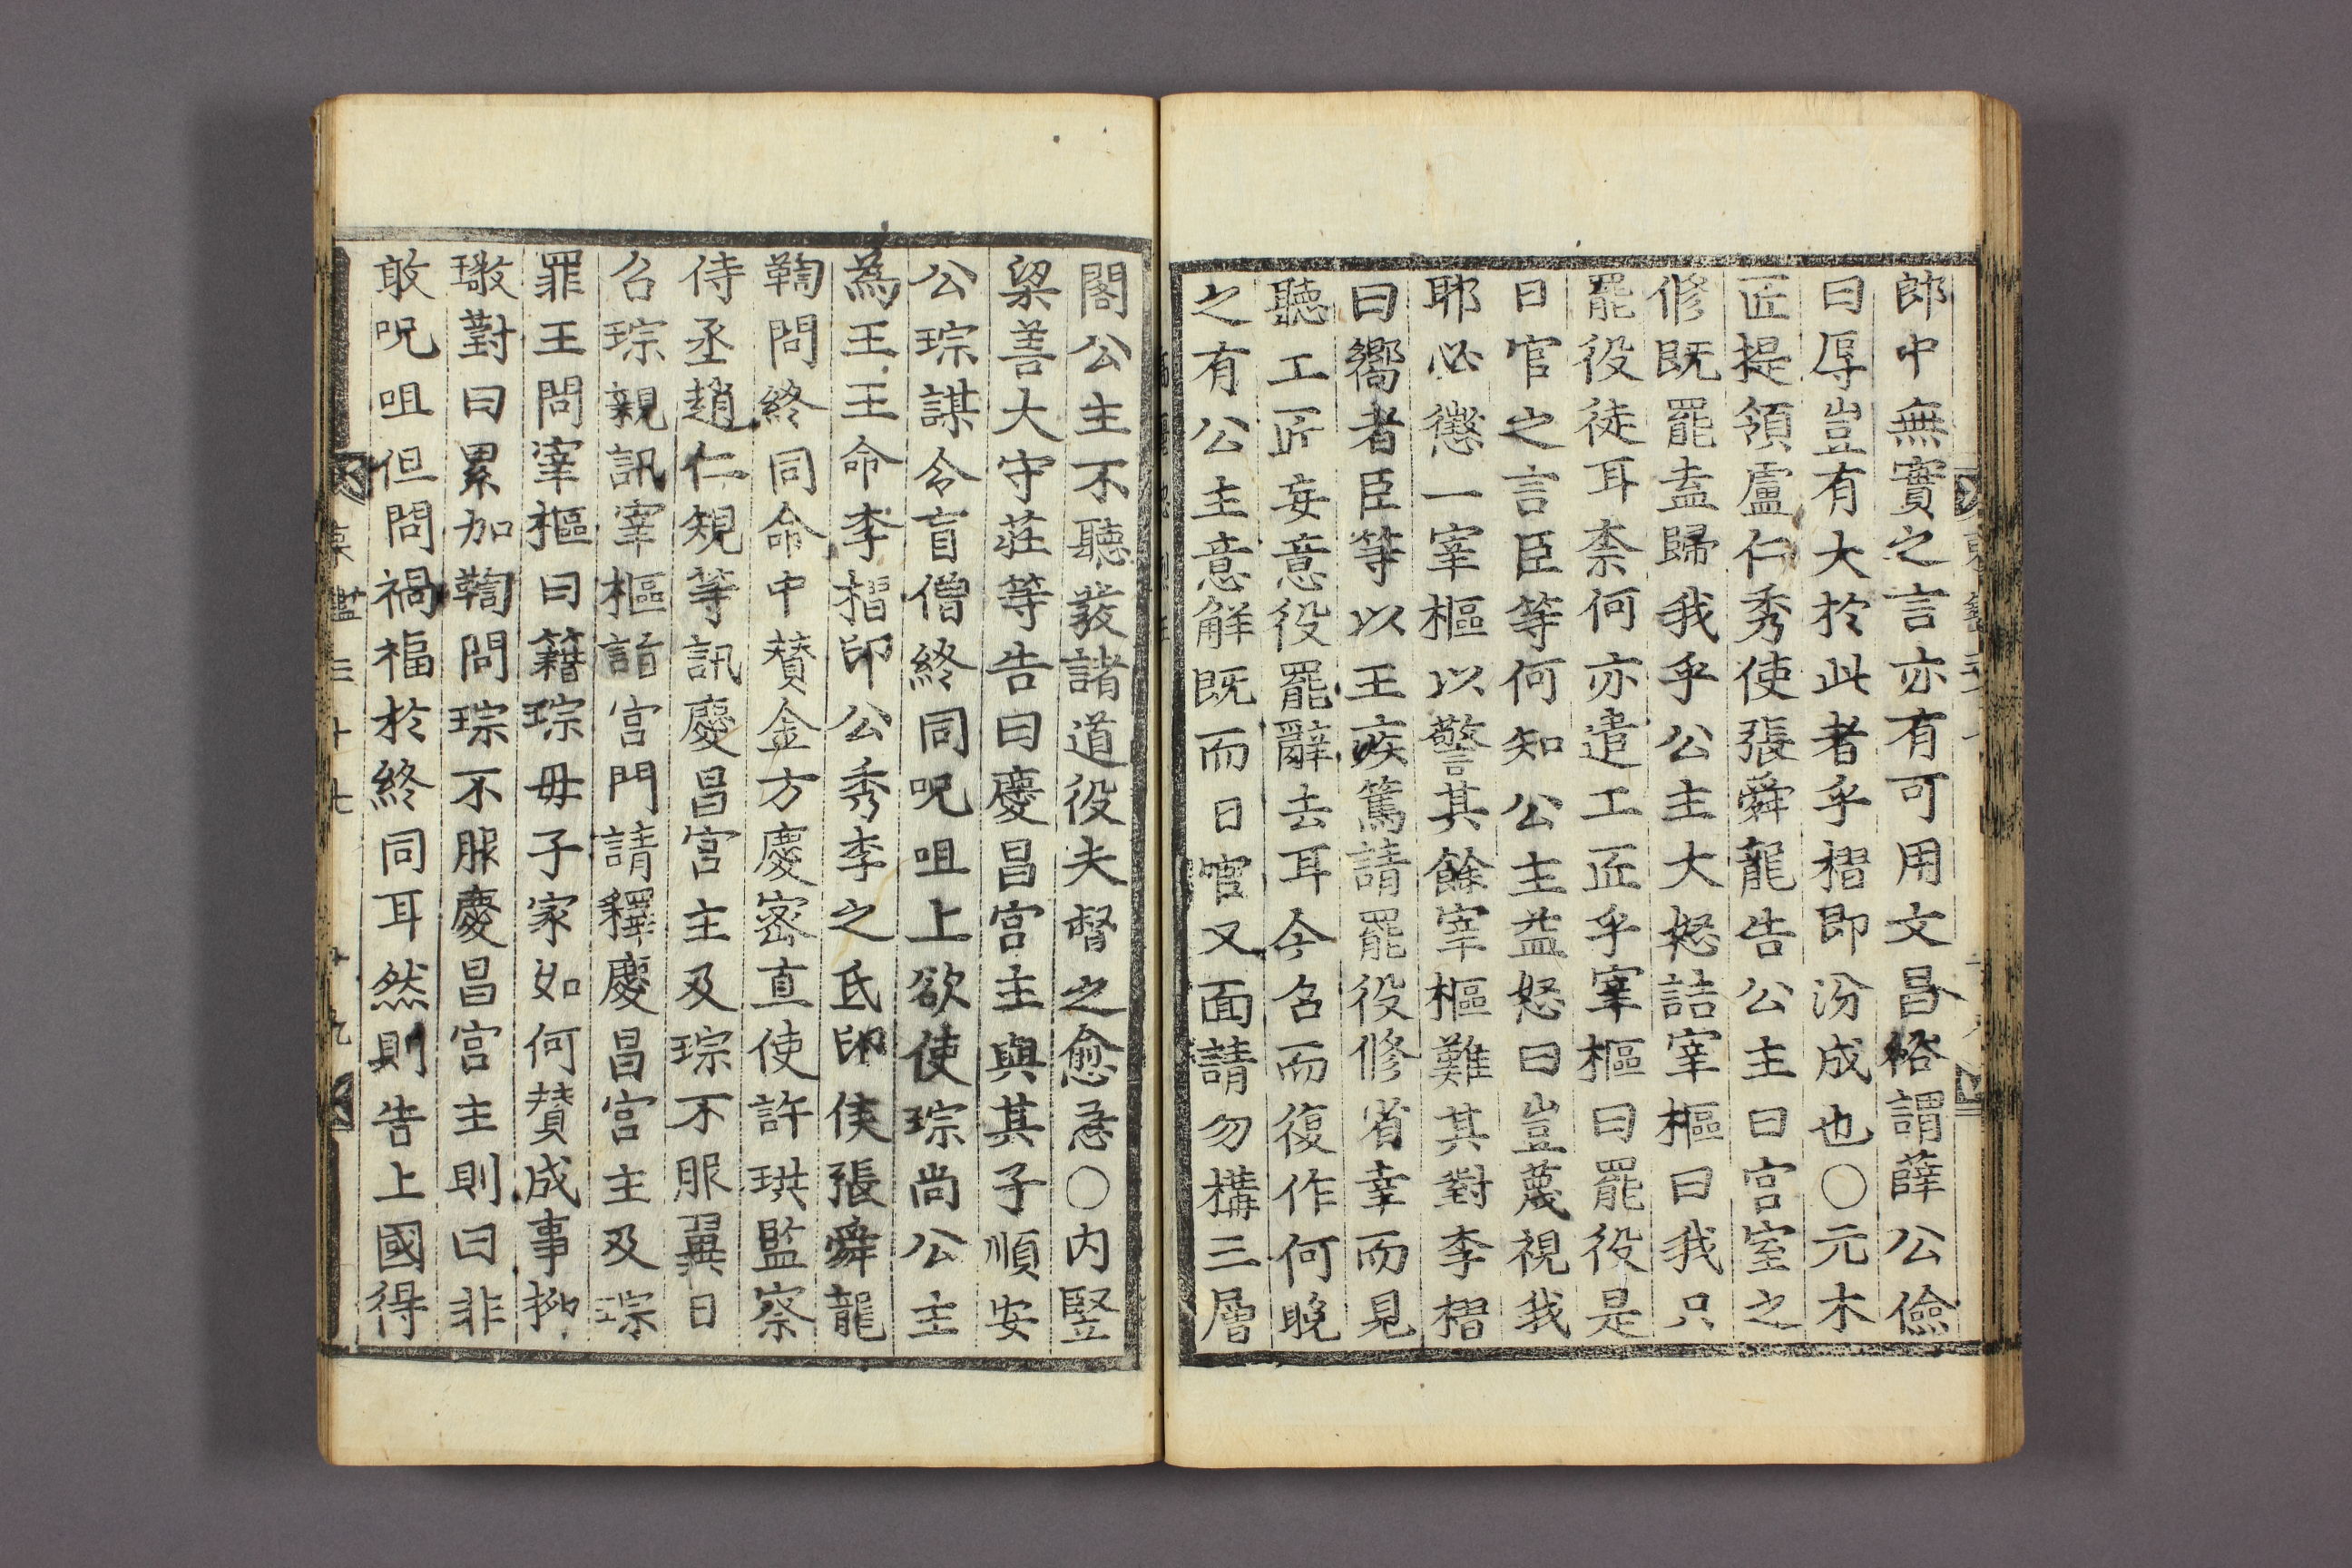 郎中無實之言亦有可用文昌裕謂薛公儉
曰厚豈有大於此者乎槢即汾成也〇元木
匠提領盧仁秀使張舜龍告公主曰宮室之
修既罷盍歸我乎公主大怒詰宰樞曰我只
罷役徒耳柰何亦遣工匠乎宰樞曰罷役是
日官之言臣等何知公主益怒曰豈蔑視我
耶必懲一宰樞以警其餘宰樞難其對李槢
曰嚮者臣等以王疾篤請罷役修省幸而見
聽工匠妄意役罷辭去耳今召而復作何晚
之有公主意解既而日官又面請勿構三層
閣公主不聽發諸道役夫督之愈急〇內竪
梁善大守莊等告曰慶昌宮主與其子順安
公琮謀令盲僧終同呪咀上欲使琮尚公主
爲王王命李槢印公秀李之氐印侯張舜龍
鞫問終同命中贊金方慶密直使許珙監察
侍丞趙仁規等訊慶昌宮主及琮不服翼日
召琮親訊宰樞詣宮門請釋慶昌宮主及琮
罪王問宰樞曰籍琮毋子家如何贊成事柳
璥對曰累加鞫問琮不服慶昌宮主則曰非
敢呪咀但問禍福於終同耳然則告上國得